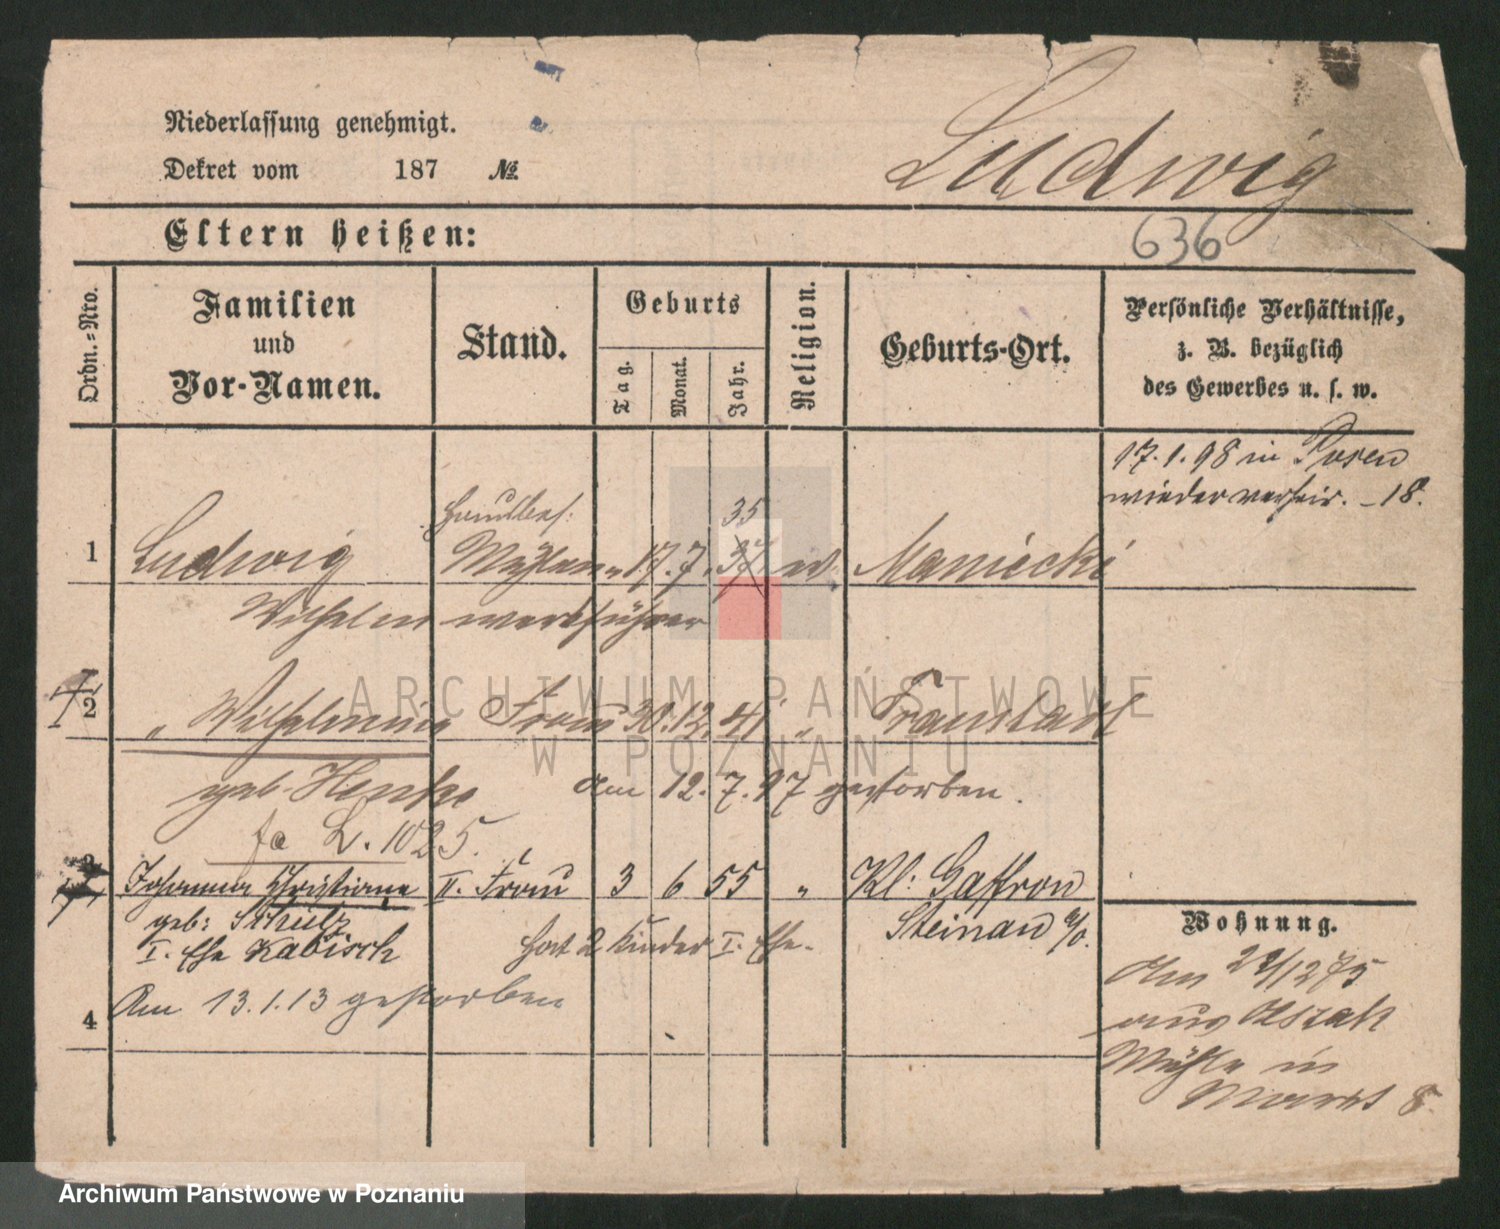 Niederlassung genehmigt.
Dekret vom 187 №
Ludwig
Eltern heißen:
636
Ordn.-Nro.
Familien
und
Vor-Namen.
Stand.
Geburts
Tag.
Monat.
Jahr.
Religion.
Geburts-Ort.
Persönliche Verhältnisse,
z. B. bezüglich
des Gewerbes u. s. w.
17.1.98 in Posen
wieder verheir. - 18.
35
1 Ludwig Mühlen- 17. 7. 37. ev. Maniecki
Wilhelm werkführer
2 " Wilhelmine Frau 30. 12. 41 " Fraustadt
geb. Henke am 12. 7. 97 gestorben.
L. 1025.
3 Johanna Christiane II. Frau 3 6 55 " Kl: Gaffron
geb: Schulz Steinau a/O.
I. Ehe Kabisch hat 2 Kinder I. Ehe.
4 Am 13.1.13 gestorben
Wohnung.
Am 22/12 75
aus
Mühle in
8.
ARCHIWUM PAŃSTWOWE
W POZNANIU
Archiwum Państwowe w Poznaniu